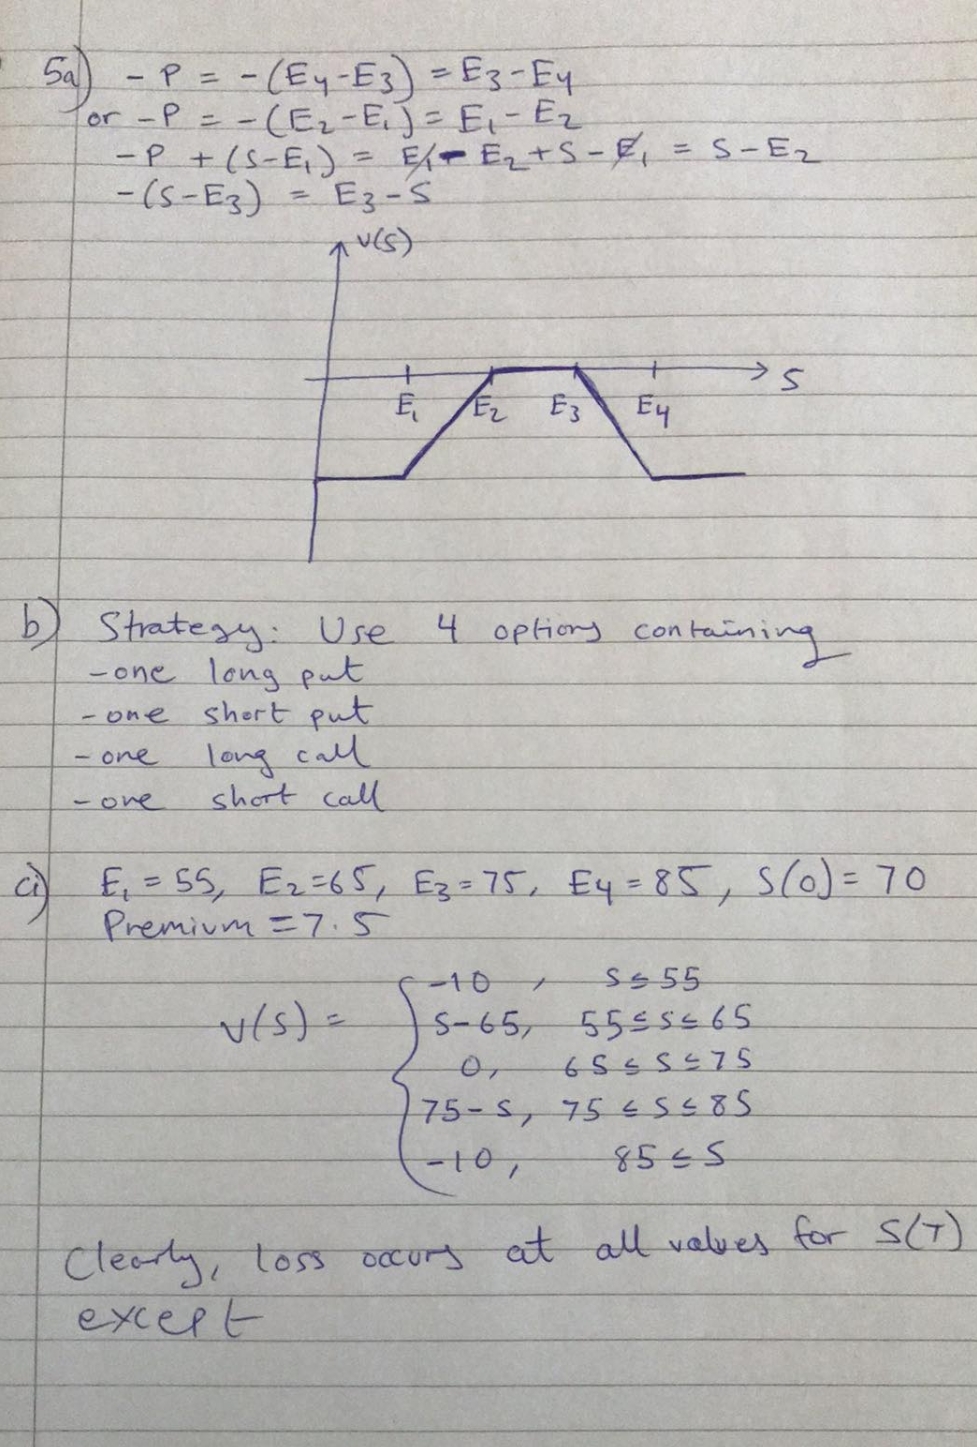 5a) - P = -(E4-E3) = E3-E4
or -P = -(E2-E1) = E1-E2
-P + (S-E1) = E1 - E2 + S - E1 = S-E2
-(S-E3) = E3-S
V(S)
S
E1 E2 E3 E4
b) Strategy: Use 4 options containing
-one long put
-one short put
-one long call
-one short call
ci) E1 = 55, E2=65, E3=75, E4=85, S(0)=70
Premium = 7.5
-10, S≤55
V(S)= S-65, 55≤S≤65
0, 65≤S≤75
75-S, 75≤S≤85
-10, 85≤S
Clearly, loss occurs at all values for S(T)
except